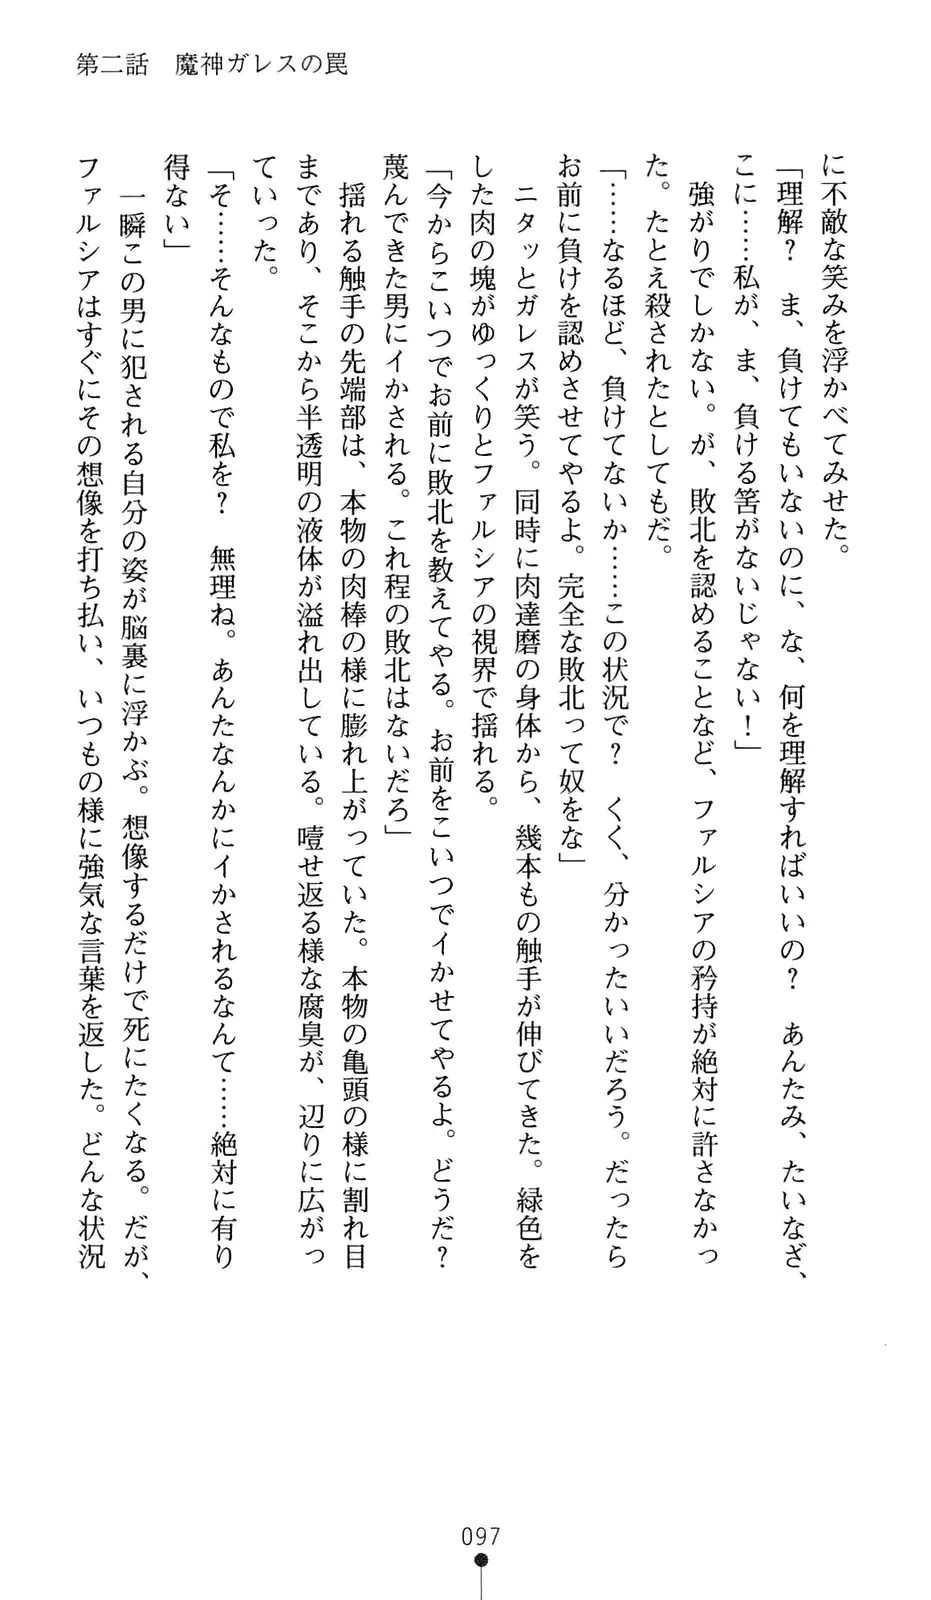 第二話　魔神ガレスの罠
に不敵な笑みを浮かべてみせた。
「理解？　ま、負けてもいないのに、な、何を理解すればいいの？　あんたみ、たいなざ、
こに……私が、ま、負ける筈がないじゃない！」
　強がりでしかない。が、敗北を認めることなど、ファルシアの矜持が絶対に許さなかっ
た。たとえ殺されたとしてもだ。
「……なるほど、負けてないか……この状況で？　くく、分かったいいだろう。だったら
お前に負けを認めさせてやるよ。完全な敗北って奴をな」
　ニタッとガレスが笑う。同時に肉達磨の身体から、幾本もの触手が伸びてきた。緑色を
した肉の塊がゆっくりとファルシアの視界で揺れる。
「今からこいつでお前に敗北を教えてやる。お前をこいつでイかせてやるよ。どうだ？
蔑んできた男にイかされる。これ程の敗北はないだろ」
　揺れる触手の先端部は、本物の肉棒の様に膨れ上がっていた。本物の亀頭の様に割れ目
まであり、そこから半透明の液体が溢れ出している。噎せ返る様な腐臭が、辺りに広がっ
ていった。
「そ……そんなもので私を？　無理ね。あんたなんかにイかされるなんて……絶対に有り
得ない」
　一瞬この男に犯される自分の姿が脳裏に浮かぶ。想像するだけで死にたくなる。だが、
ファルシアはすぐにその想像を打ち払い、いつもの様に強気な言葉を返した。どんな状況
097